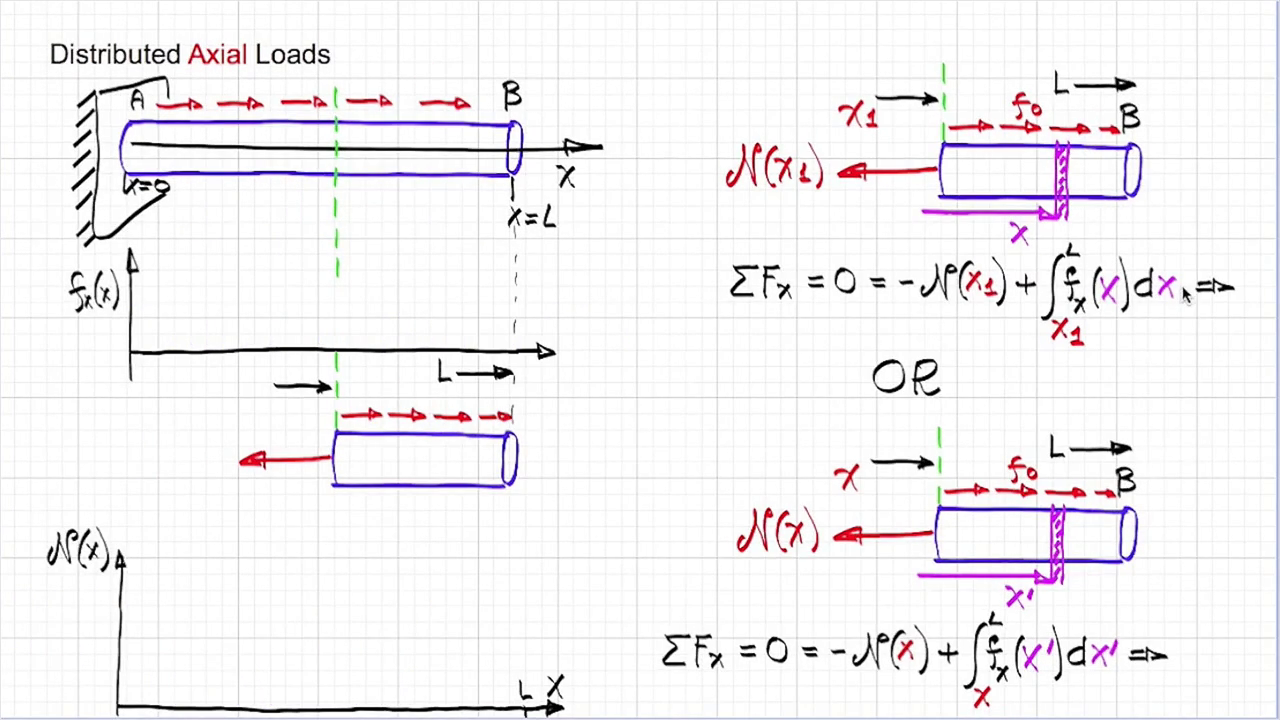 Distributed Axial Loads
A
B
x=0
X
x=L
fₓ(x)
L
N(x)
L X
L
x1
f0
B
N(x1)
x
ΣFx = 0 = -N(x1) + ∫_{x1}^{L} fx(x)dx ⇒
OR
L
x
f0
B
N(x)
x'
ΣFx = 0 = -N(x) + ∫_{x}^{L} fx(x')dx' ⇒